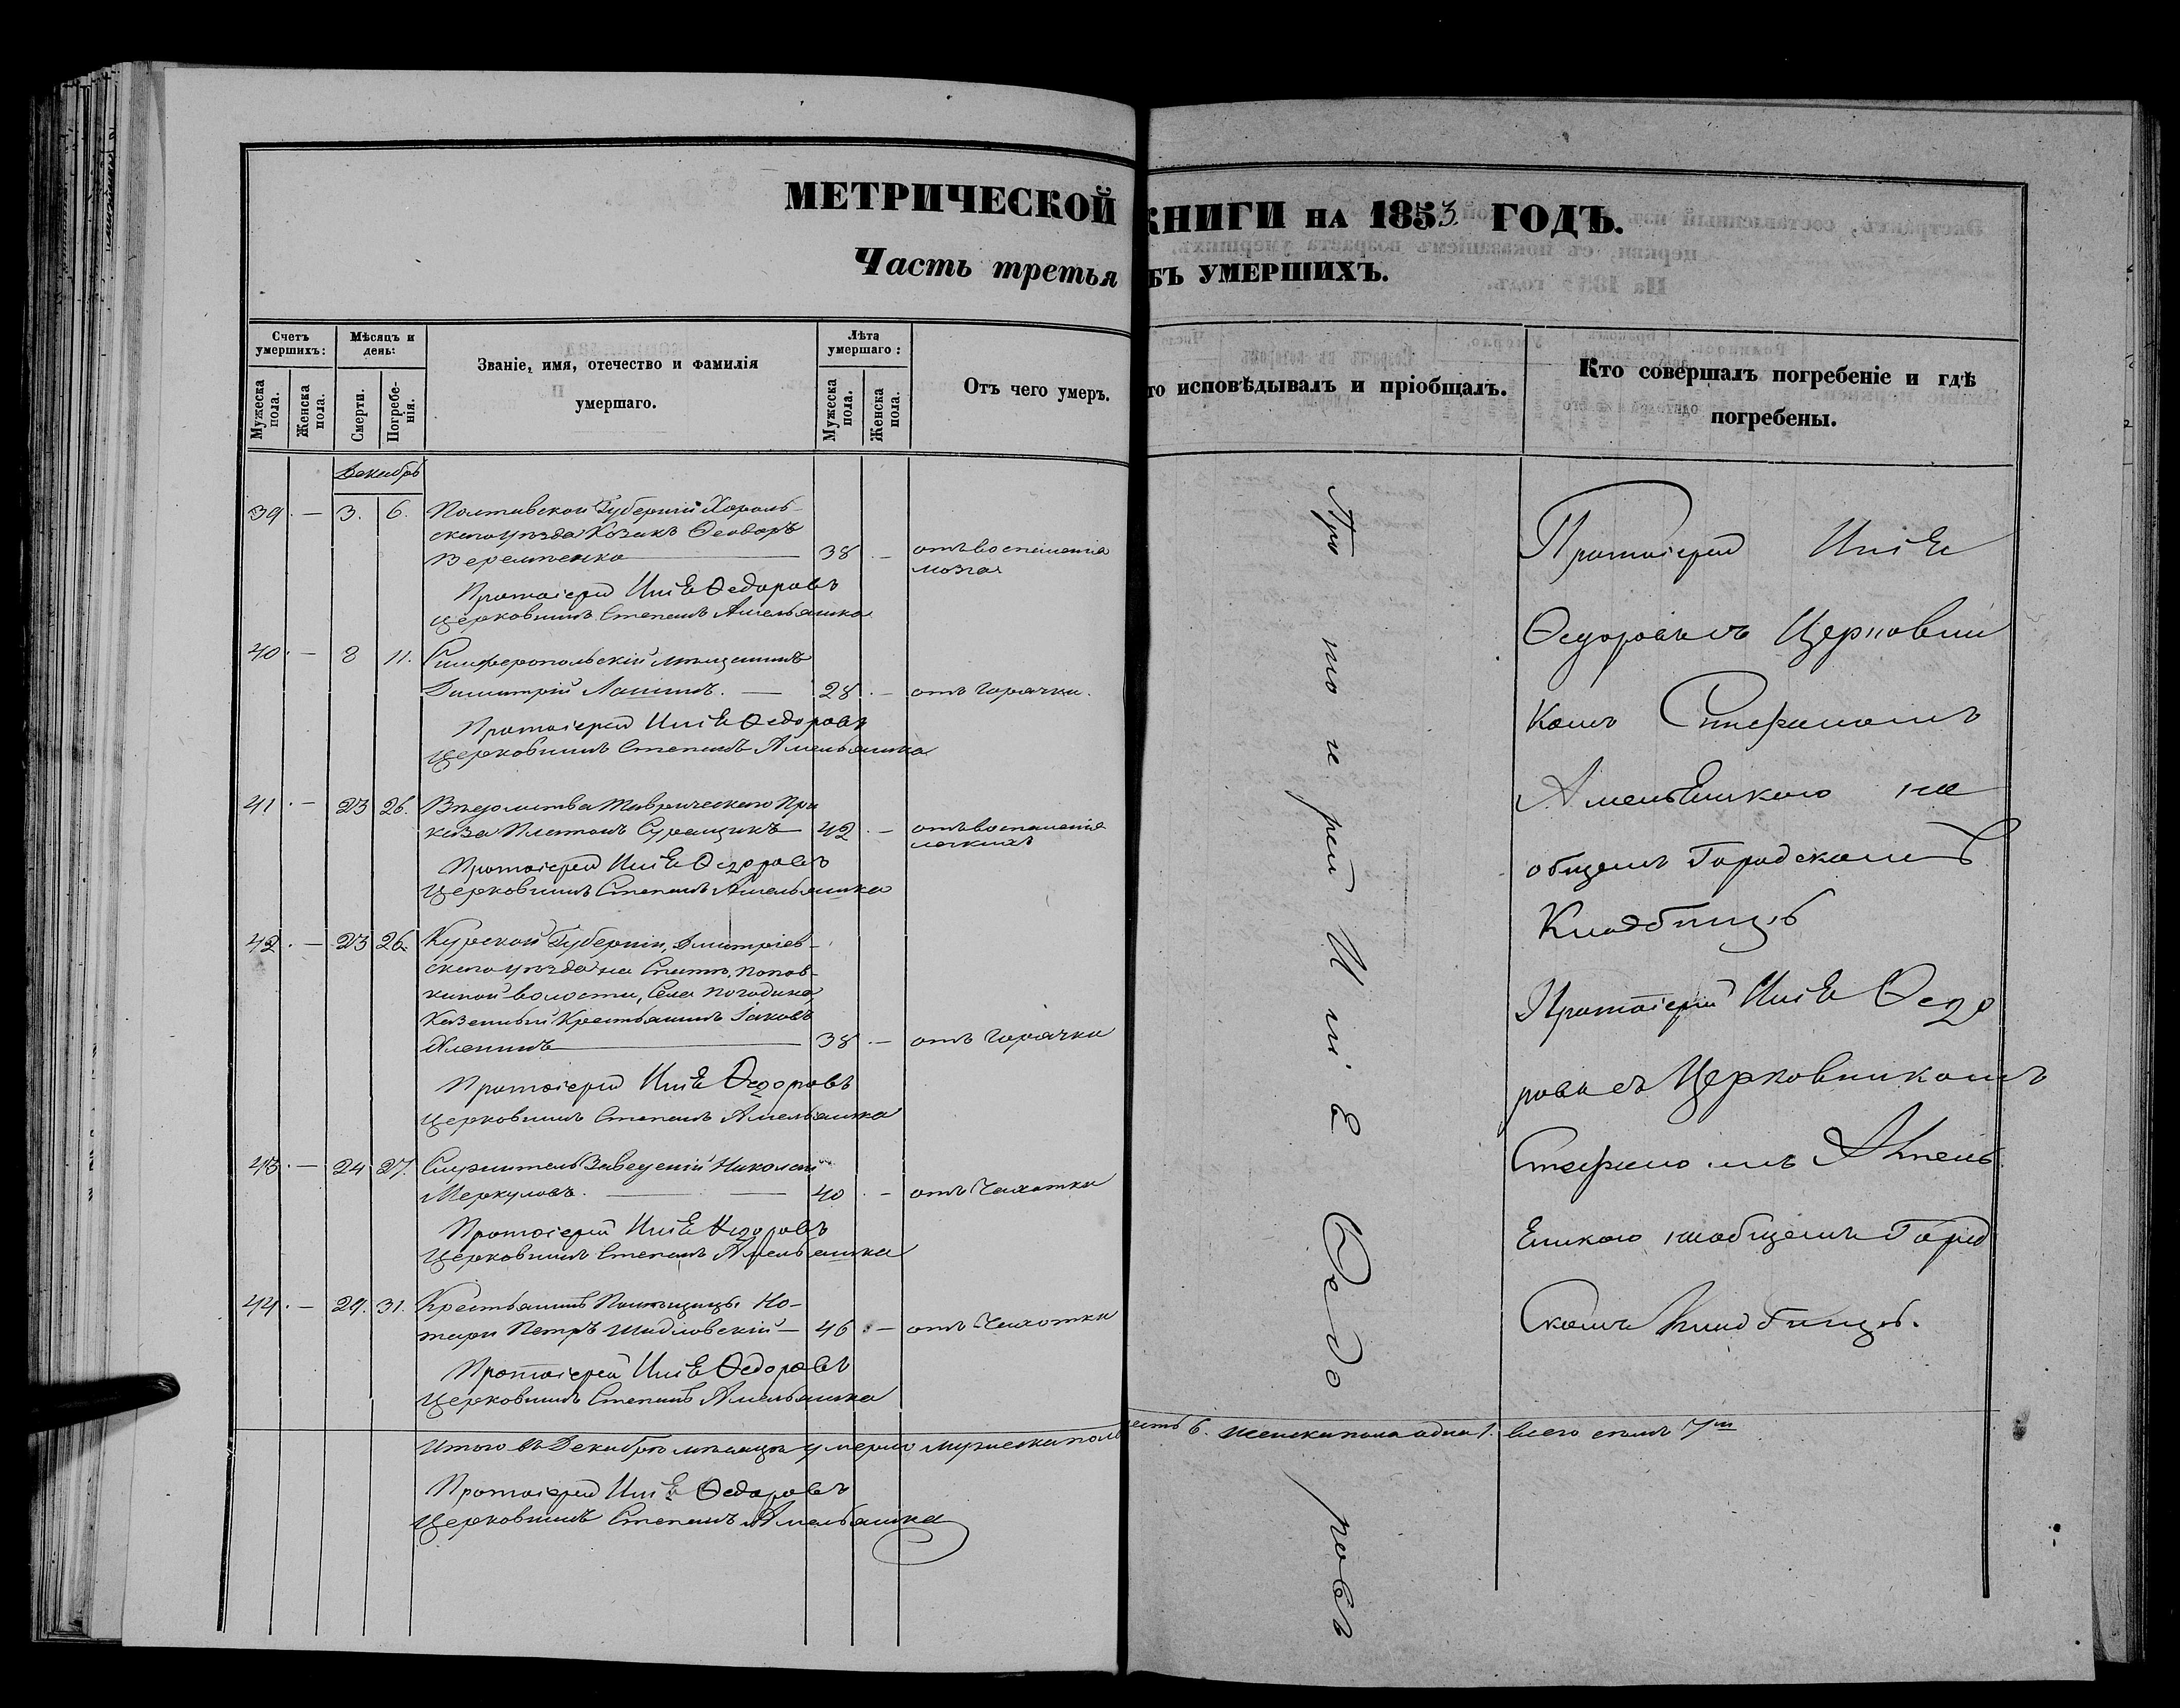 МЕТРИЧЕСКОЙ КНИГИ НА 1853 ГОДЪ.
Часть третья
БЪ УМЕРШИХЪ.
Счетъ умершихъ:
Мужеска пола.
Женска пола.
Мѣсяцъ и день:
Смерти.
Погребенія.
Званіе, имя, отечество и фамилія
умершаго.
Лѣта умершаго:
Мужеска пола.
Женска пола.
Отъ чего умеръ.
то исповѣдывалъ и пріобщалъ.
Кто совершалъ погребеніе и гдѣ
погребены.
Декабрь
39. — 3. 6. Полтавской Губерніи Хороль-
скаго уѣзда Козакъ Ѳеодоръ
Веремѣенко — 38 — отъ воспаленія
мозга
Протоіерей Ѳедоровъ
Церковникъ Степанъ Амельянка
40. — 8 11. Симферопольскій мѣщанинъ
Димитрій — 28. — отъ горячки.
Протоіерей Ѳедоровъ
Церковникъ Степанъ Амельянка
41. — 23 26. Вѣдомства Таврическаго При
каза Платонъ — 42 — отъ воспаленія
легкихъ
Протоіерей Ѳедоровъ
Церковникъ Степанъ Амельянка
42. — 23 26. Курской Губерніи, Дмитріев-
скаго уѣзда на Попов-
киной волости, Села Погодина
Казенный Крестьянинъ Іаковъ
— 38. — отъ горячки
Протоіерей Ѳедоровъ
Церковникъ Степанъ Амельянка
43. — 24 27. Служитель Заведеній Николай
Меркуловъ. — 40 — отъ Чахотки
Протоіерей Ѳедоровъ
Церковникъ Степанъ Амельянка
44. — 29. 31. Крестьянинъ Помѣщицы Но-
тари Петръ Шидловскій — 46 — отъ Чахотки
Протоіерей Ѳедоровъ
Церковникъ Степанъ Амельянка
Итого въ Декабрѣ мѣсяцѣ умерло мужеска пола шесть 6. женска пола одна 1. всего семь 7
Протоіерей Ѳедоровъ
Церковникъ Степанъ Амельянка
Протоіерей Ѳедоровъ
Протоіерей
Ѳедоровъ съ Церковни
комъ Стефаномъ
на
общемъ Городскомъ
Кладбищѣ
Протоіерей Ѳедо
ровъ съ Церковникомъ
Стефаномъ
на общемъ Город
скомъ Кладбищѣ.